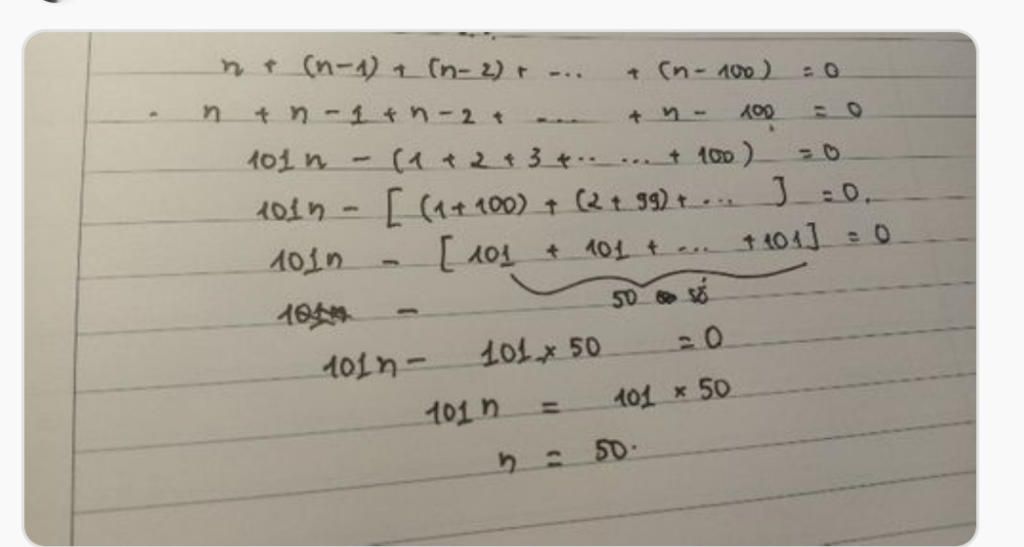 n + (n-1) + (n-2) + .... + (n-100) = 0
n + n - 1 + n - 2 + .... + n - 100 = 0
101n - (1 + 2 + 3 + .. ... + 100) = 0
101n - [ (1+100) + (2+99) + ... ] = 0.
101n - [ 101 + 101 + ... + 101 ] = 0
50 số
101n -
101n - 101 × 50 = 0
101n = 101 × 50
n = 50.